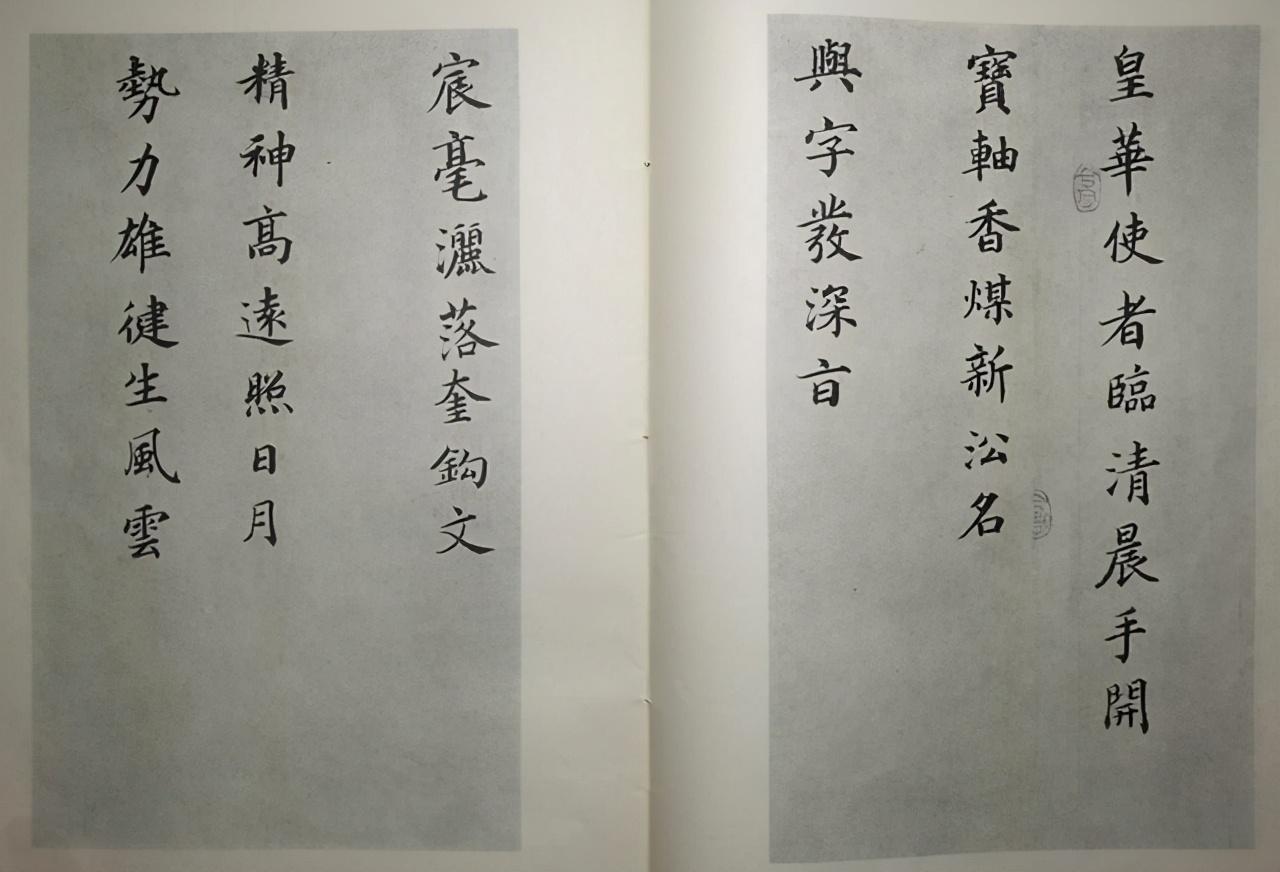 皇華使者臨清晨手開
寶軸香煤新㳂名
與字發深㫖
宸毫灑落奎鈎文
精神高遠照日月
勢力雄健生風雲